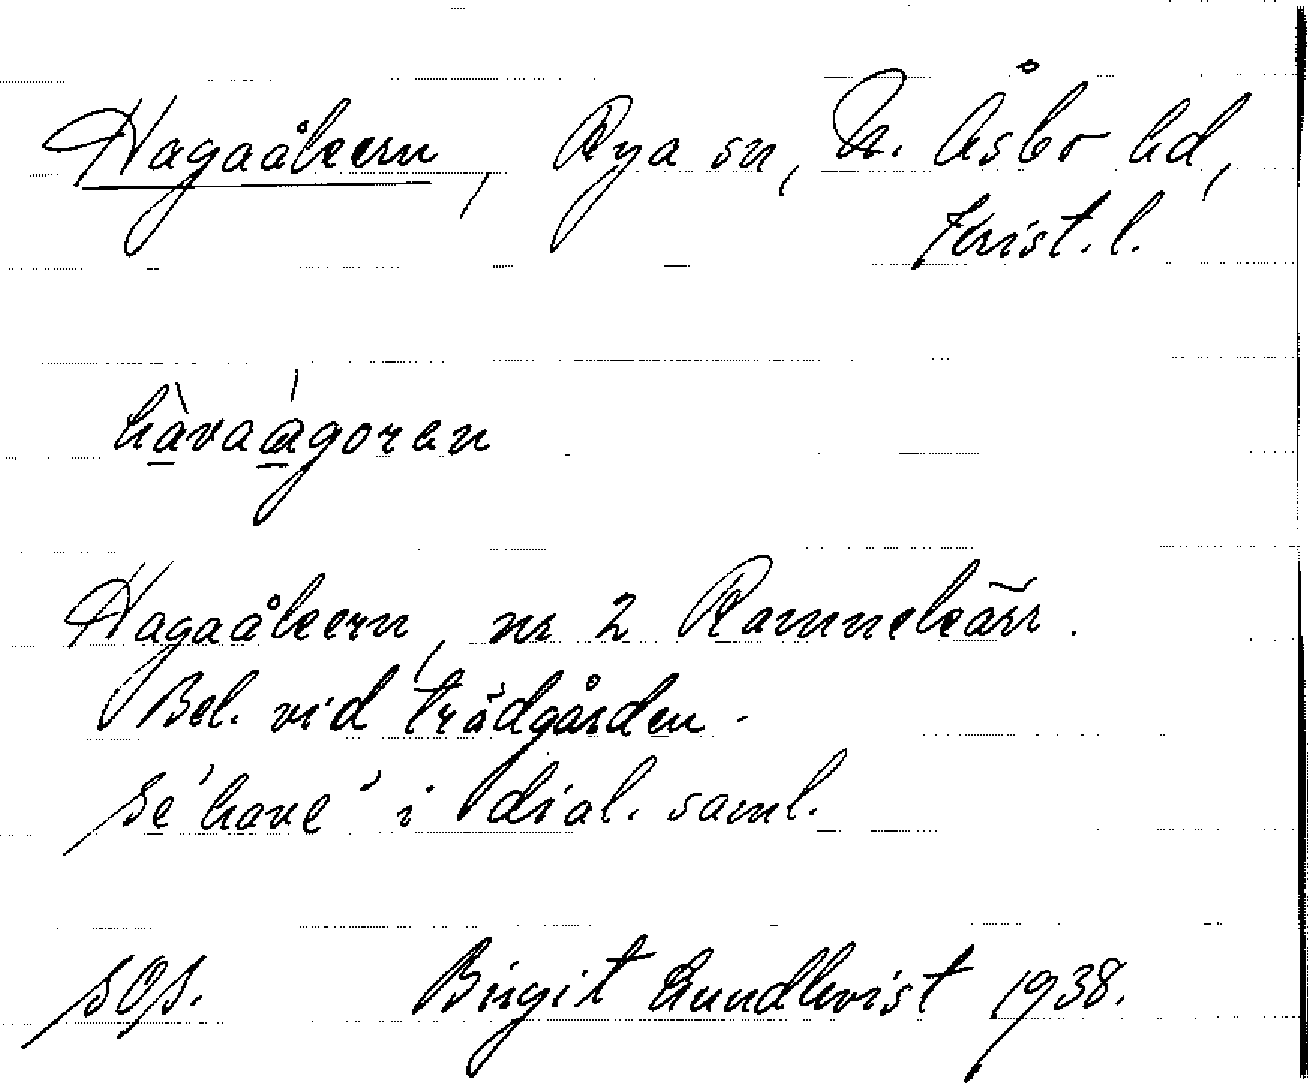 Hagaåkern, Rya sn, N. Åsbo hd,
Krist. l.
hàvaágoren
Hagaåkern, nr 2 Ramnekärr.
Bel. vid trädgården.
Se 'have' i dial. saml.
SOS. Birgit Lundkvist 1938.